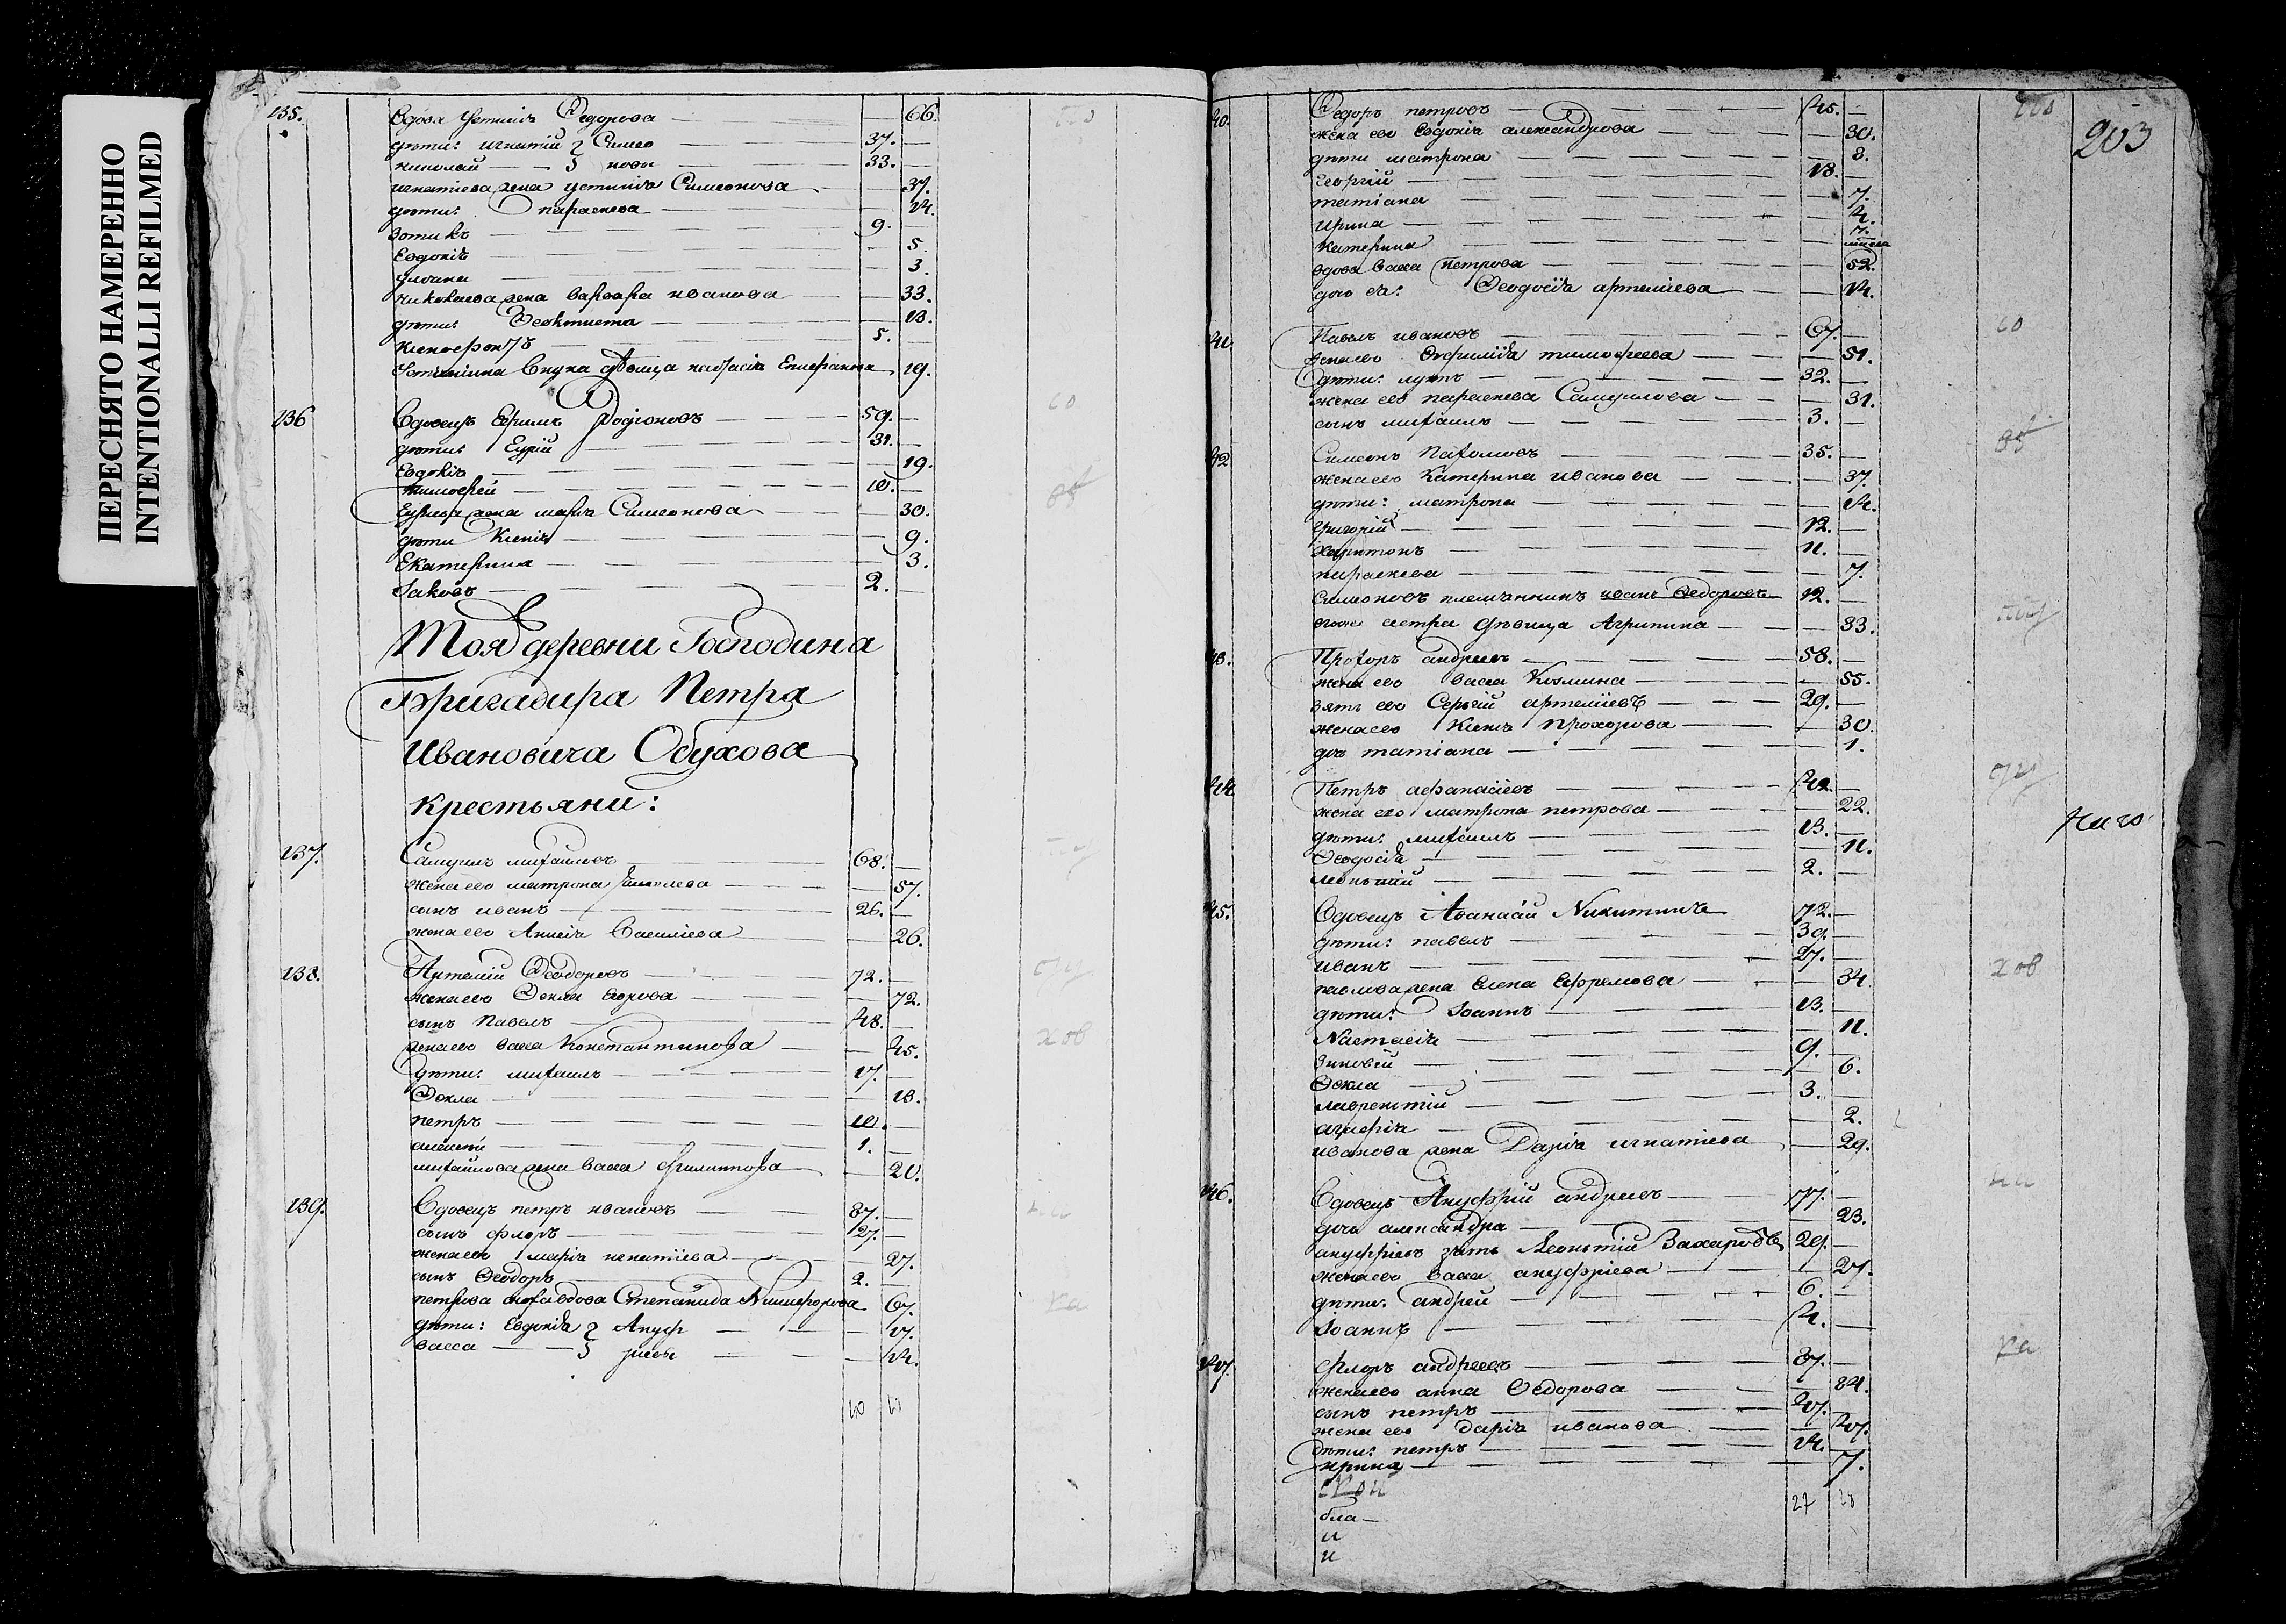 ПЕРЕСНЯТО НАМЕРЕННО
INTENTIONALLI REFILMED
135. Вдова Устинiа Федорова 66.
дѣти: игнатiй Симео 37.
николай новы 33.
игнатiева жена устинiа Симеонова 37.
дѣти: параскева 14.
Зотикъ 9.
Евдокiа 5.
улiана 3.
николаева жена варвара иванова 33.
дѣти: Феоктиста 13.
ксенофонтъ 5.
внука дѣвица настасiа Епифанова 19.
136 Вдовецъ Ефимъ Родiоновъ 59.
дѣти: Гурiй 31.
Евдокiа 19.
тимофей 10.
Гурiева жена марiа Симеонова 30.
дѣти Ксенiа 9.
Екатерина 3.
Iаковъ 2.
Тоя деревни Господина
Бригадира Петра
Ивановича Обухова
крестьяни:
137. Самуилъ михайловъ 68.
жена его матрона 57.
сынъ иванъ 26.
жена его Анисiа Василiева 26.
138. Артемiй Феодоровъ 72.
жена его Фекла 72.
сынъ Павелъ 48.
жена его васса Константинова 45.
дѣти: михаилъ 17.
Фекла 13.
петръ 10.
алексей 1.
михайлова жена васса филиппова 20.
139. Вдовецъ петръ ивановъ 87.
сынъ флоръ 27.
жена его марiа игнатiева 27.
сынъ Феодоръ 2.
петрова сноха вдова Степанида Никифорова 67.
дѣти: Евдокiа Ануф 17.
васса рiевы 14.
40 43
203
40. Федоръ петровъ 45.
жена его Евдокiа александрова 30.
дѣти матрона 8.
Георгiй 13.
татiана 7.
ирина 4.
катерина
вдова васса петрова 52.
дочь ея: Феодосiа артемiева 14.
41 Павелъ ивановъ 67.
жена его Евфимiа тимофеева 51.
дѣти: 32.
жена его параскева Самуилова 31.
сынъ михаилъ 3.
42 Симеонъ Пахомовъ 35.
жена его Катерина иванова 37.
дѣти: матрона 14.
григорiй 12.
харитонъ 11.
параскева 7.
симеоновъ племянникъ иванъ Федоровъ 12.
его же сестра дѣвица Агрипина 33.
43. Прохоръ андреевъ 58.
жена его васса Козмина 55.
зять его Сергiй артемiевъ 29.
жена его Ксенiа прохорова 30
дочь татiана 1.
44 Петръ афанасiевъ 42.
жена его матрона петрова 22.
дѣти: михаилъ 13.
Феодосiа 11.
леонтiй 2.
45. Вдовецъ Афанасiй Никитинъ 72.
дѣти: павелъ 39.
иванъ 27.
павлова жена Елена Ефремова 34
дѣти: Iоаннъ 13.
Настасiа 11.
Зиновiй 9.
Фекла 6.
лаврентiй 3.
агафiа 2.
иванова жена Дарiа игнатiева 29.
146. Вдовецъ Ануфрiй андреевъ 77.
дочь александра 23.
ануфрiевъ зять Леонтiй Захаровъ 29.
жена его васса ануфрiева 27.
дѣти: андрей 6.
Iоаннъ 4.
147. флоръ андреевъ 87.
жена его анна Федорова 84.
сынъ петръ 47.
жена его дарiа иванова 47.
дѣти: петръ 14.
ирина 7.
27 28